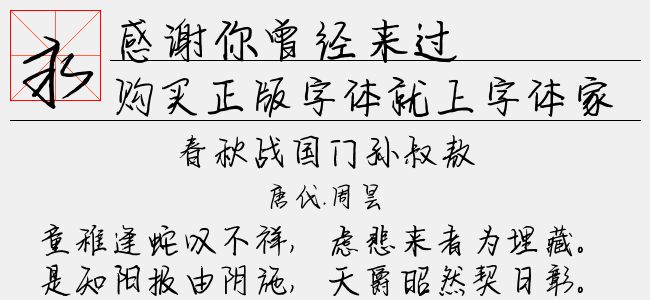 永
感谢你曾经来过
购买正版字体就上字体家
春秋战国门孙叔敖
唐代.周昙
童稚逢蛇叹不祥,虑悲来者为埋藏。
是知阳报由阴施,天爵昭然契日彰。